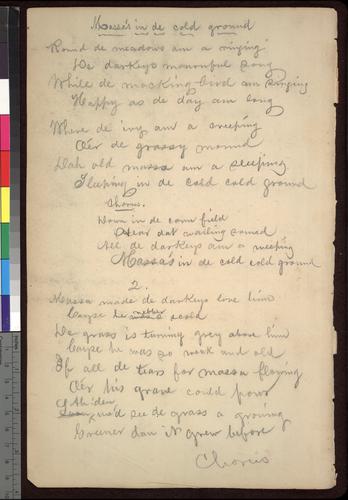 Massa's in de cold ground
Round de meadows am a ringing
De darkeys mournful song
While de mocking bird am singing
Happy as de day am long
Where de ivy am a creeping
O'er de grassy mound
Dah old massa am a sleeping
Sleeping in de cold cold ground
Chorus.
Down in de corn field
Hear dat wailing sound
All de darkeys am a weeping
Massa's in de cold cold ground
2.
Massa made de darkeys love him
Cayse he
De grass is turning grey above him
Cayse he was so weak and old
If all de tears for massa flowing
O'er his grave could pour
we'd see de grass a growing
Greener dan it grew before
Chorus